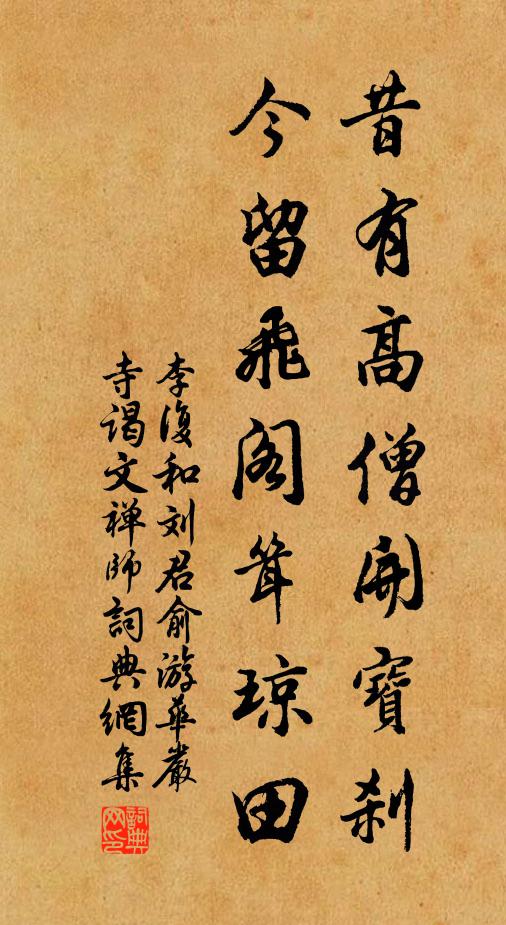 昔有高僧開寶刹
今留飛阁耸琼田
李復和刘君俞游華嚴
寺谒文禅师詞典網集
詞典网印